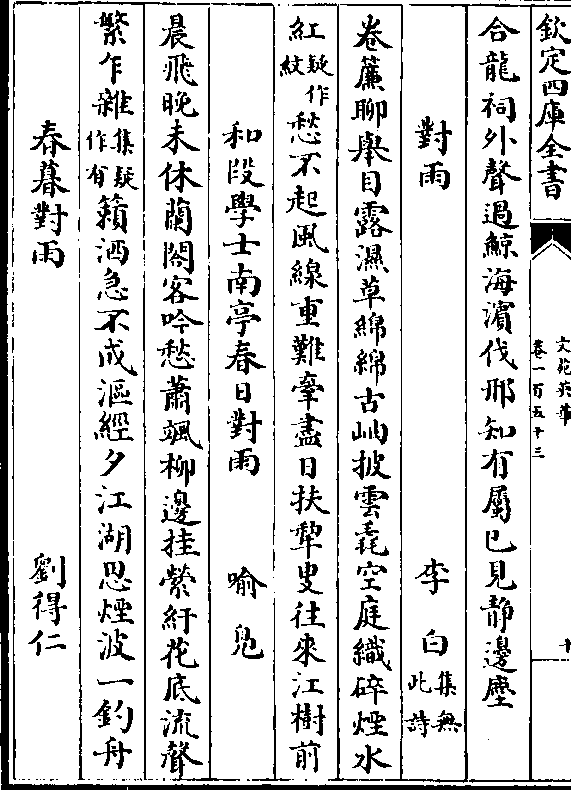 欽定四庫全書
文苑英華
卷一百五十三
十
合龍祠外聲過鯨海濱伐邢知有屬已見静邊塵
對雨 李白集無此詩
卷簾聊舉目露濕草綿綿古岫披雲毳空庭織碎煙水
紅疑作紋愁不起風線重難牽盡日扶犂叟往來江樹前
和段學士南亭春日對雨 喻鳧
晨飛晚未休蘭閣客吟愁蕭颯柳邊挂縈紆花底流聲
繁乍雜集疑作有籟洒急不成漚經夕江湖思煙波一釣舟
春暮對雨 劉得仁